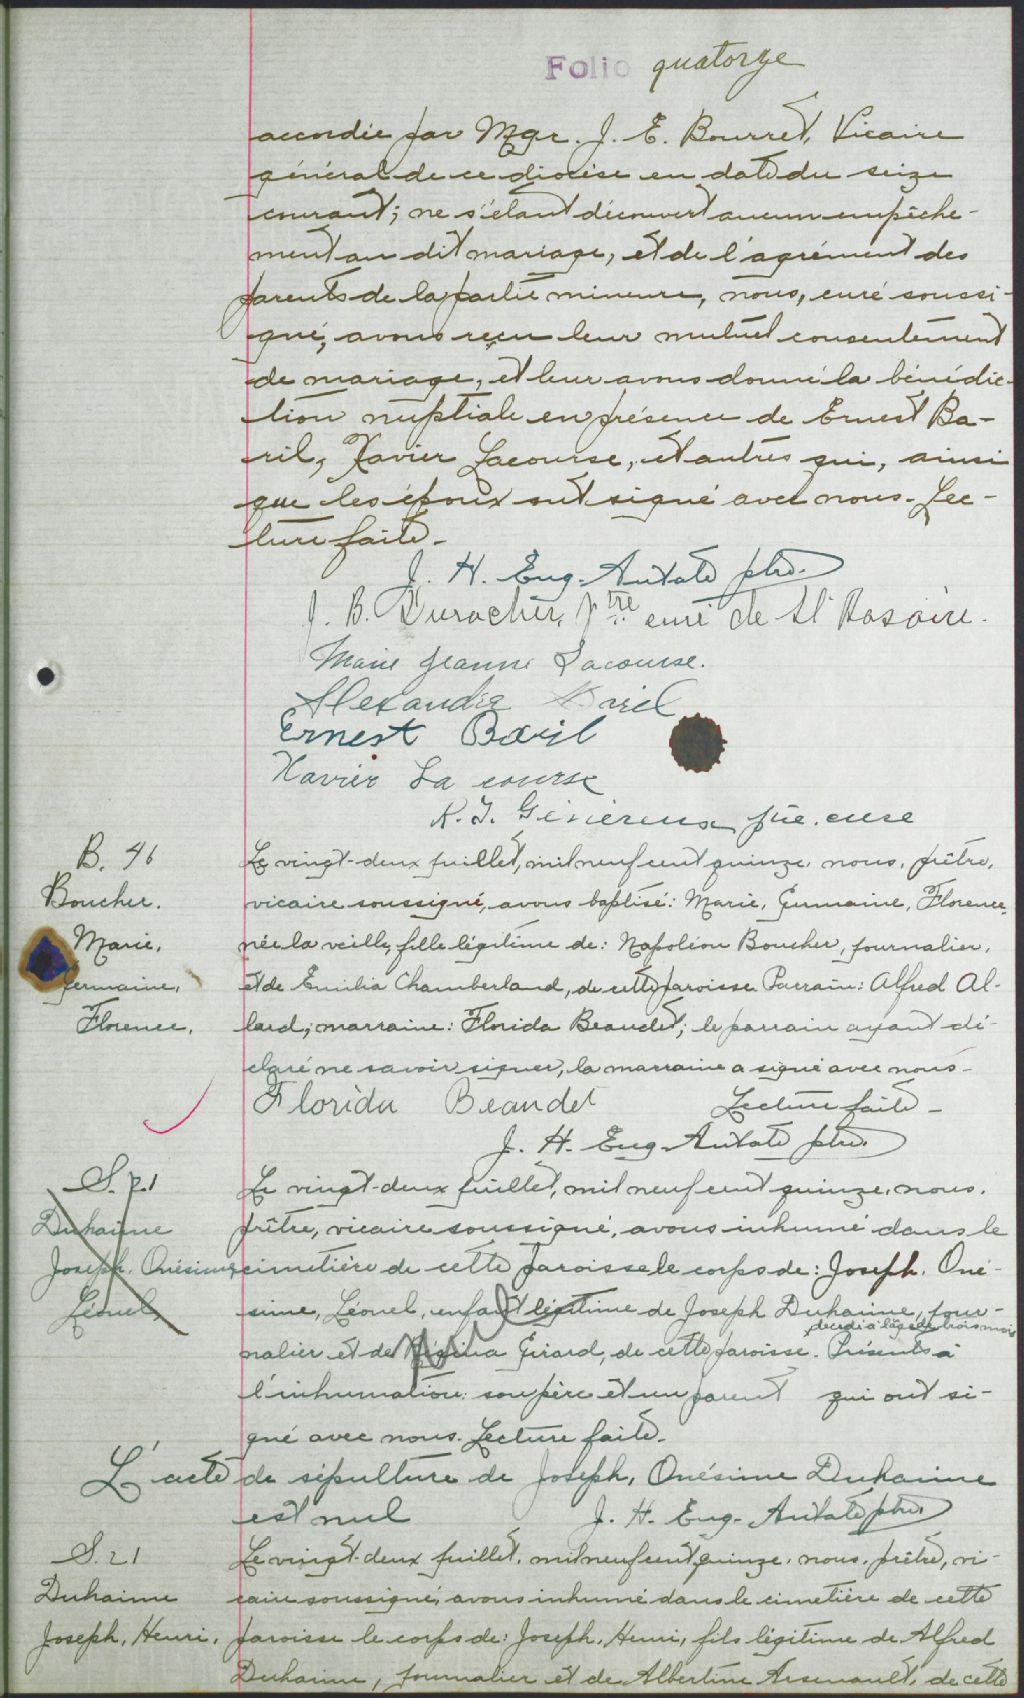 Folio quatorze
accordée par Mgr. J. E. Bourret, Vicaire
général de ce diocèse en date du seize
courant; ne s'étant découvert aucun empêche-
ment au dit mariage, et de l'agrément des
parents de la partie mineure, nous, curé soussi-
gné, avons reçu leur mutuel consentement
de mariage, et leur avons donné la bénédic-
tion nuptiale en présence de Ernest Ba-
ril, Xavier Lacourse, et autres qui, ainsi
que les époux ont signé avec nous. Lec-
ture faite.
J. H. Eug. Autote ptre.
J. B. Durocher, ptre curé de St Rosaire.
Marie Jeanne Lacourse.
Alexandre Baril
Ernest Baril
Xavier La course
R. J. Généreux ptre. curé
B. 46
Boucher.
Marie,
Germaine,
Florence,
Le vingt-deux juillet, mil neuf cent quinze, nous, prêtre,
vicaire soussigné, avons baptisé: Marie, Germaine, Florence,
née la veille, fille légitime de: Napoléon Boucher, journalier,
et de Emilia Chamberland, de cette paroisse Parrain: Alfred Al-
lard; marraine: Florida Beaudet; le parrain ayant dé-
claré ne savoir signer, la marraine a signé avec nous.
Florida Beaudet Lecture faite.
J. H. Eug. Autote ptre.
S.
Duhaime
Joseph. Onésime,
Léonel,
Le vingt-deux juillet, mil neuf cent quinze, nous,
prêtre, vicaire soussigné, avons inhumé dans le
cimetière de cette paroisse le corps de: Joseph. Oné-
sime, Léonel, enfant légitime de Joseph Duhaime, jour-
décédé à l'âge de trois mois
nalier et de Régina Girard, de cette paroisse. Présents à
l'inhumation: son père et un parent qui ont si-
gné avec nous. Lecture faite.
Nul
L'acte de sépulture de Joseph, Onésime Duhaime
est nul J. H. Eug. Autote ptre.
S. 21
Duhaime
Joseph, Henri,
Le vingt-deux juillet, mil neuf cent quinze, nous, prêtre, vi-
caire soussigné, avons inhumé dans le cimetière de cette
paroisse le corps de: Joseph, Henri, fils légitime de Alfred
Duhaime, journalier et de Albertine Arsenault, de cette